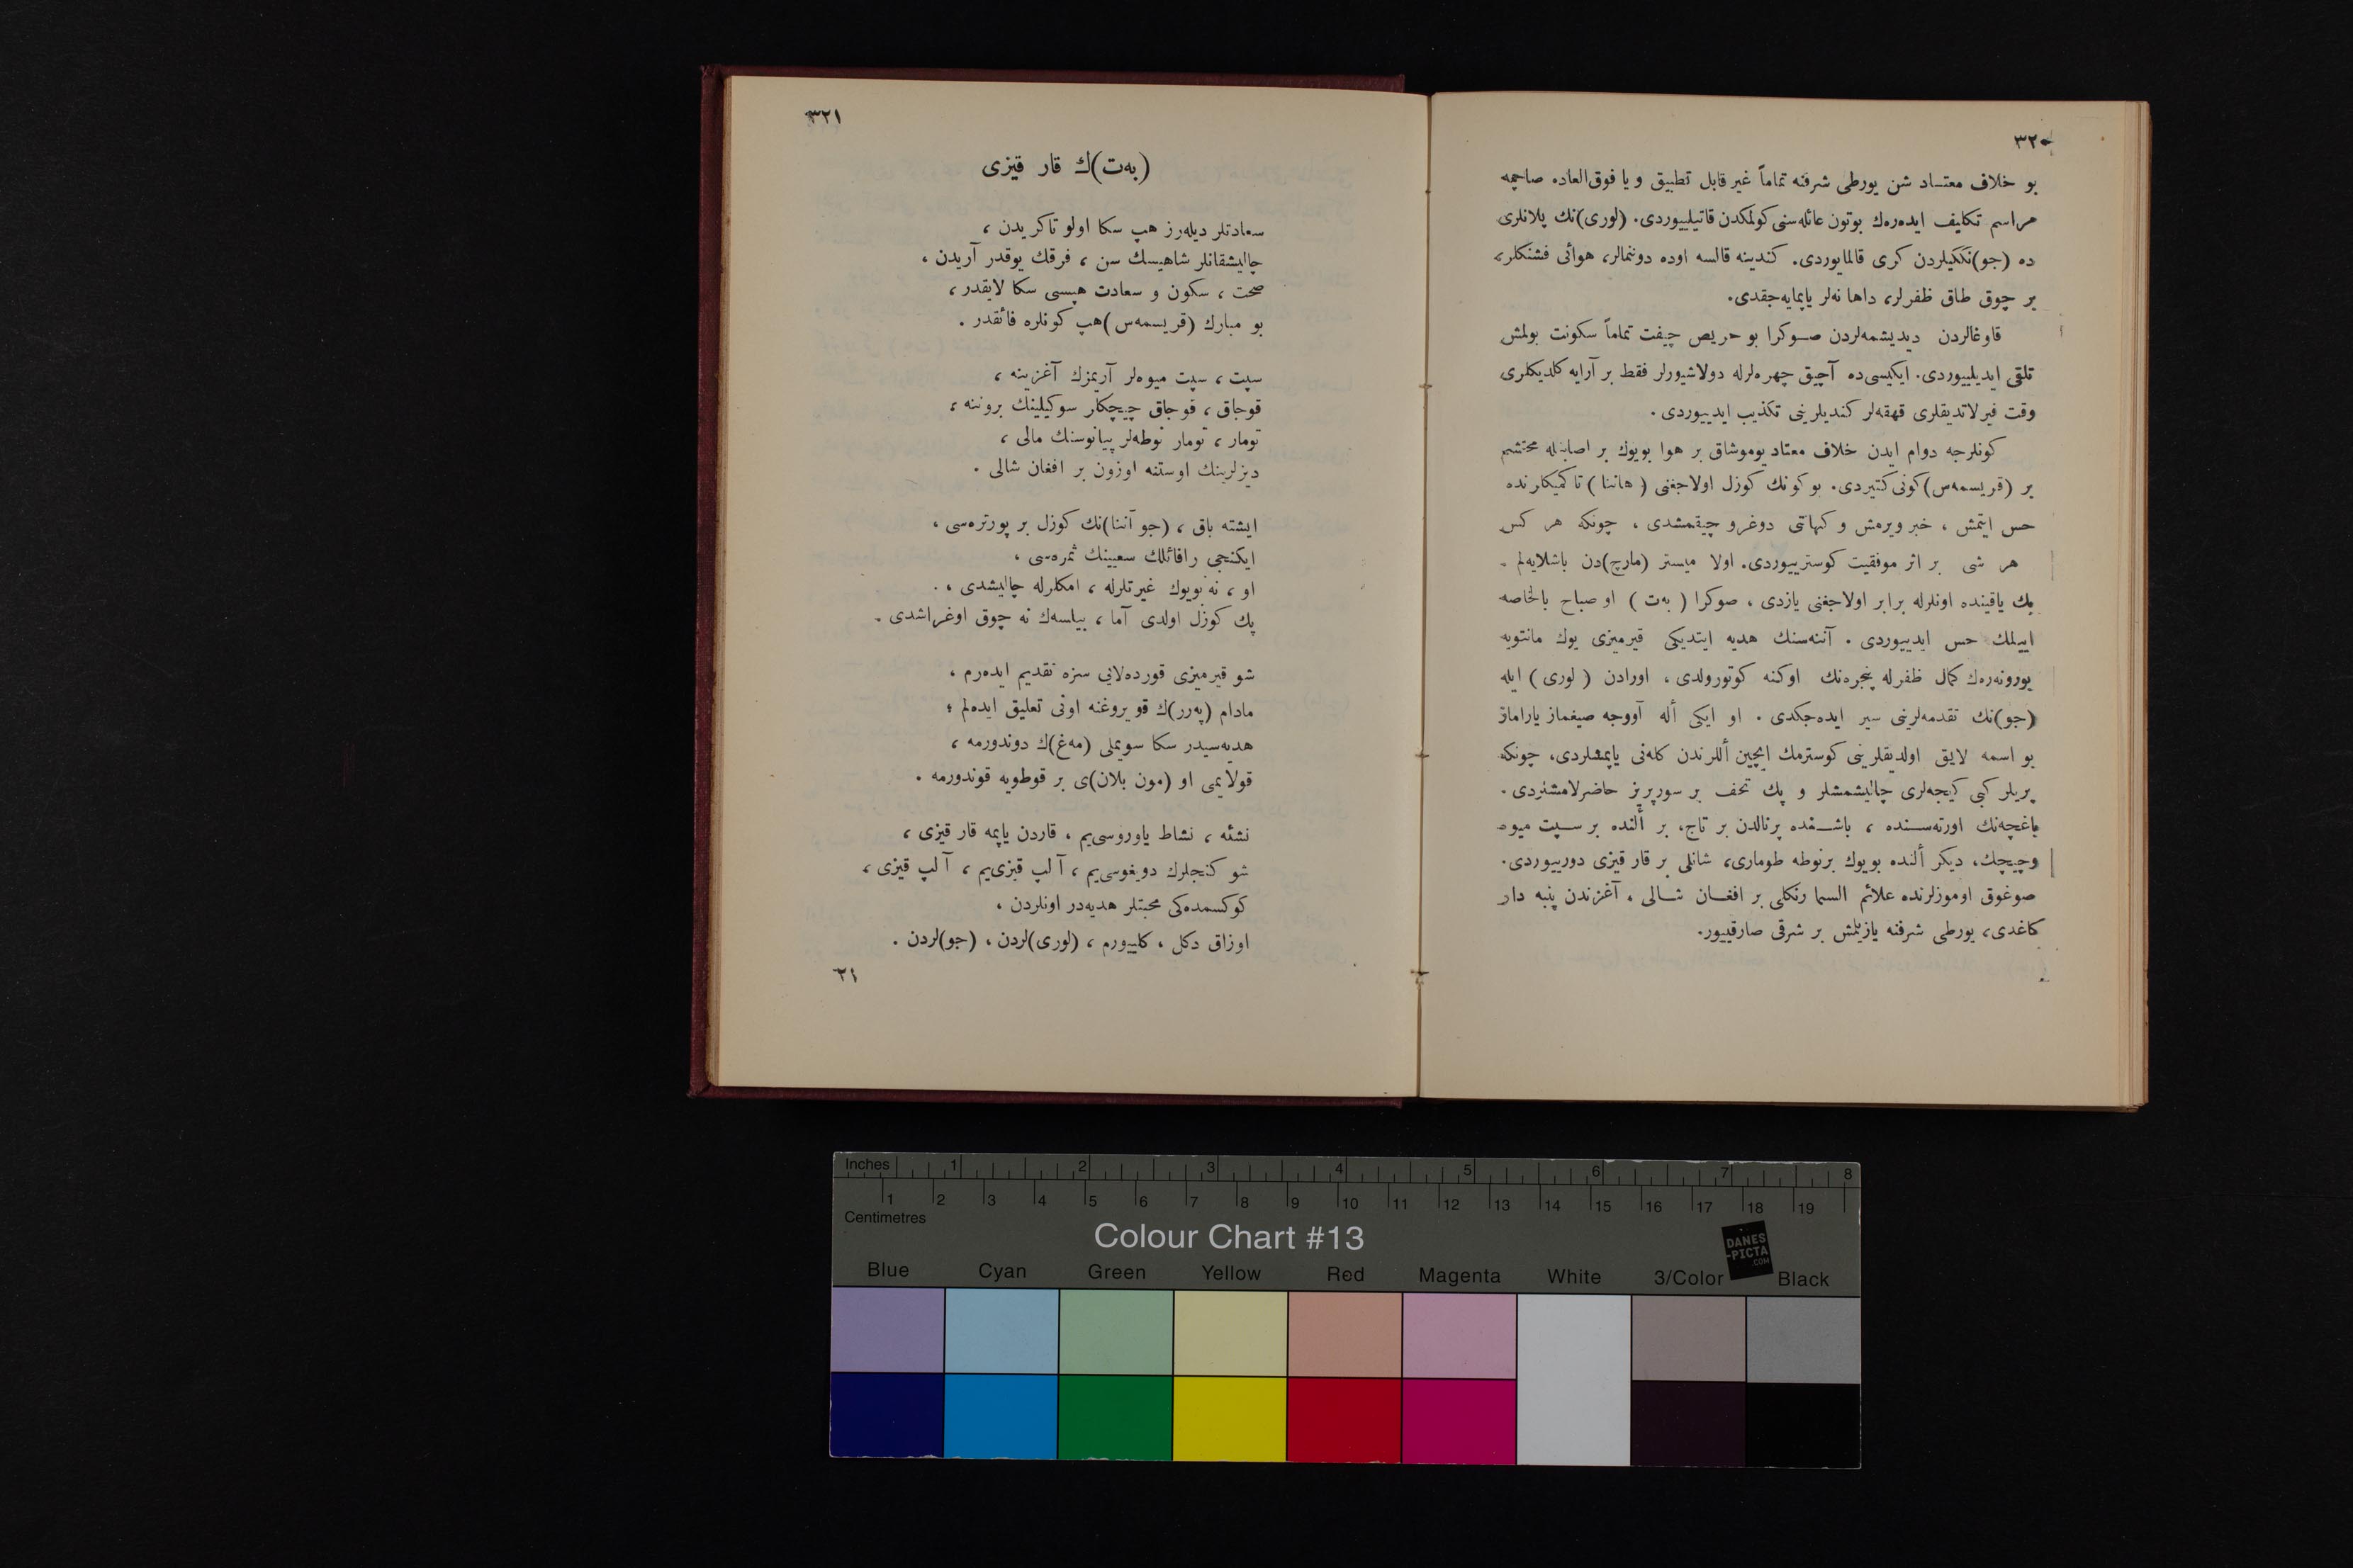 ٣٢٠
بو خلاف معتاد شن یورطی شرفنه تماماً غیر قابل تطبیق و یا فوق‌العاده صاچمه
مراسم تکلیف ایده‌رك بوتون عائله‌سنی کولمکدن قاتیلییوردی. (لوری)نك پلانلری
ده (جو)نككیلردن کری قالمایوردی. کندینه قالسه اوده دوننمالر، هوائی فشنکلر،
بر چوق طاق ظفرلر، داها نه‌لر یاپمایه‌جقدی.
قاوغالردن دیدیشمه‌لردن صوکرا بو حریص چیفت تماماً سکونت بولمش
تلقی ایدیلییوردی. ایکیسی‌ده آچیق چهره‌لرله دولاشیورلر فقط بر آرایه کلدیکلری
وقت فیرلاتدیقلری قهقهه‌لر کندیلرینی تکذیب ایدییوردی.
کونلرجه دوام ایدن خلاف معتاد یوموشاق بر هوا بویوك بر اصابتله محتشم
بر (قریسمه‌س) کونی کتیردی. بو کونك کوزل اولاجغنی (هاننا) تا کمیکلرنده
حس ایتمش ، خبر ویرمش و کهانتی دوغرو چیقمشدی ، چونکه هر کس
هر شی بر اثر موفقیت کوسترییوردی. اولا میستر (مارچ)دن باشلایه‌لم .
پك یاقینده اونلرله برابر اولاجغنی یازدی ، صوکرا (به‌ت) او صباح بالخاصه
اییلك حس ایدییوردی . آننه‌سنك هدیه ایتدیکی قیرمیزی یوك مانتویه
بورونه‌رك کمال ظفرله پنجره‌نك اوکنه کوتورولدی ، اورادن (لوری) ایله
(جو)نك تقدمه‌لرینی سیر ایده‌جکدی . او ایکی أله آووجه صیغماز یاراماز
بو اسمه لایق اولدیقلرینی کوسترمك ایچین أللرندن کله‌نی یاپمشلردی، چونکه
پریلر کبی کیجه‌لری چالیشمشلر و پك تحف بر سورپریز حاضرلامشلردی .
باغچه‌نك اورته‌سنده ، باشنده پرنالدن بر تاج، بر ألنده بر سپت میوه
وچیچك، دیکر ألنده بویوك برنوطه طوماری، شانلی بر قار قیزی دورییوردی.
صوغوق اوموزلرنده علائم السما رنکلی بر افغان شالی ، آغزندن پنبه دار
کاغدی، یورطی شرفنه یازیلمش بر شرقی صارقییور.
٣٢١
(به‌ت)ك قار قیزی
سعادتلر دیله‌رز هپ سکا اولو تاکریدن ،
چالیشقانلر شاهیسك سن ، فرقك یوقدر آریدن ،
صحت ، سکون و سعادت هپسی سکا لایقدر ،
بو مبارك (قریسمه‌س) هپ کونلره فائقدر .
سپت ، سپت میوه‌لر آریمزك آغزینه ،
قوجاق ، قوجاق چیچکلر سوکیلینك بروننه ،
تومار ، تومار نوطه‌لر پیانوسنك مالی ،
دیزلرینك اوستنه اوزون بر افغان شالی .
ایشته باق ، (جو آننا)نك کوزل بر پورتره‌سی ،
ایکنجی رافائلك سعیینك ثمره‌سی ،
او ، نه بویوك غیرتلرله ، امکلرله چالیشدی ،
پك کوزل اولدی آما ، بیلسه‌ك نه چوق اوغراشدی .
شو قیرمیزی قورده‌لایی سزه تقدیم ایده‌رم ،
مادام (په‌رر)ك قویروغنه اونی تعلیق ایده‌لم ؛
هدیه‌سیدر سکا سویملی (مه‌غ)ك دوندورمه ،
قولایمی او (مون بلان)ی بر قوطویه قوندورمه .
نشئه ، نشاط یاوروسی‌یم ، قاردن یاپمه قار قیزی ،
شو کنجلرك دویغوسی‌یم ، آلپ قیزی‌یم ، آلپ قیزی ،
کوکسمده‌کی محبتلر هدیه‌در اونلردن ،
اوزاق دکل ، کلییورم ، (لوری)لردن ، (جو)لردن .
٢١
Inches 1 2 3 4 5 6 7 8
1 2 3 4 5 6 7 8 9 10 11 12 13 14 15 16 17 18 19
Centimetres
Colour Chart #13
DANES
-PICTA
.COM
Blue Cyan Green Yellow Red Magenta White 3/Color Black